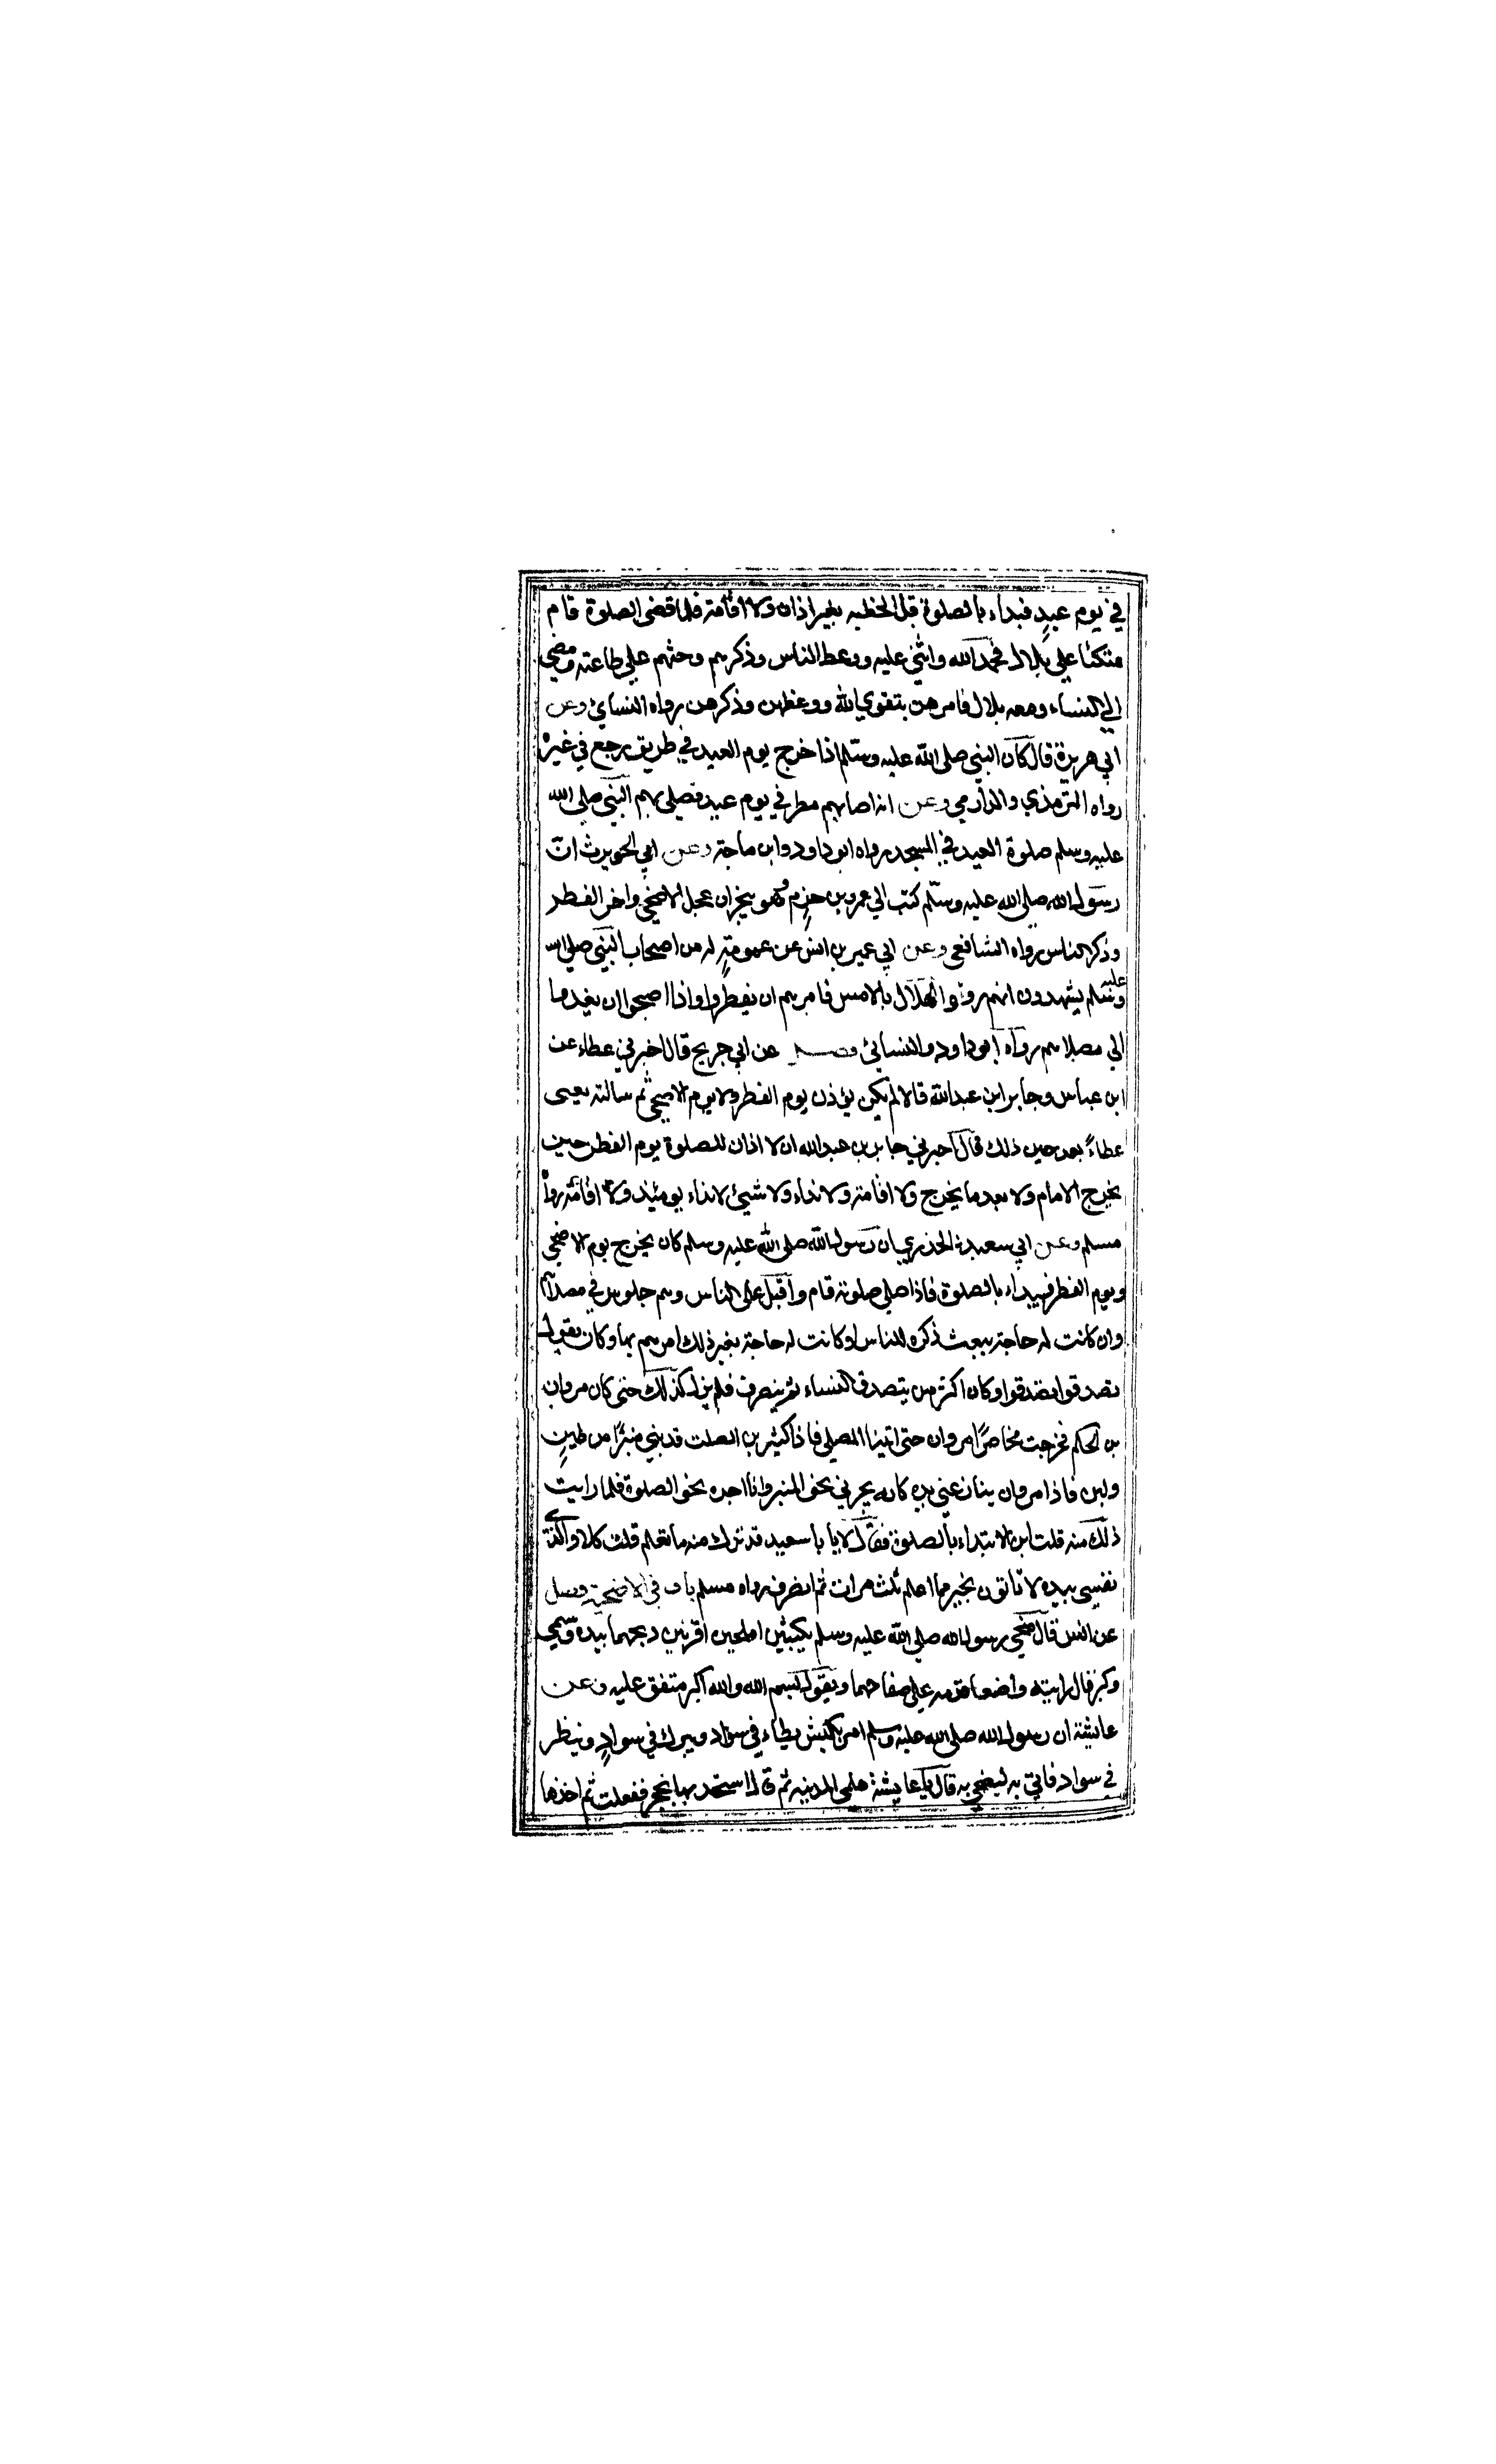 في يوم عيد فبداء بالصلوة قبل الخطبه بغير اذان ولا اقامة فلما قضى الصلوة قام
متكئا على بلال فحمد الله واثنى عليه ووعظ الناس وذكرهم وحثهم علي طاعته ومضى
الي النساء ومعه بلال فامرهن بتقوي الله ووعظهن وذكرهن رواه النسائ وعن
ابي هريرة قال كان النبي صلى الله عليه وسلم اذا خرج يوم العيد في طريق رجع في غيره
رواه الترمذي والدارمي وعن انه اصابهم مطر في يوم عيد فصلى بهم النبي صلى الله
عليه وسلم صلوة العيد في المسجد رواه ابوداود وابن ماجة وعن ابي الحويرث ان
رسول الله صلى الله عليه وسلم كتب الي عمرو بن حزم وهو بنجران عجل الاضحي واخر الفطر
وذكر الناس رواه الشافعي وعن ابي عمير بن انس عن عمومة له من اصحاب النبي صلى الله
عليه وسلم يشهدون انهم رواو الهلال بالامس فامرهم ان يفطروا واذا اصبحوا ان يغدما
الي مصلاهم رواه ابوداود والنسائئ فصل عن ابي جريج قال اخبرني عطاء عن
ابن عباس وجابر ابن عبدالله قالا لم يكن يؤذن يوم الفطر ولا يوم الاضحي ثم سالته يعنى
عطاءً بعد حين ذلك قال اخبرني جابر بن عبدالله ان لا اذان للصلوة يوم الفطر حين
يخرج الامام ولا بعد ما يخرج ولا اقامة ولا نداء ولا شيئ لا نداء يومئذ ولا اقامة رواه
مسلم وعن ابي سعيد الخذري ان رسول الله صلى الله عليه وسلم كان يخرج يوم الاضحي
ويوم الفطر فيبداء بالصلوة فاذا صلي صلوته قام واقبل على الناس وهم جلوس في مصلاهم
وان كانت له حاجة ببعث ذكره للناس او كانت له حاجة بغير ذلك امرهم بها وكان يقول
تصدقوا تصدقوا وكان اكثر من يتصدق النساء ثم ينصرف فلم يزل كذلك حتى كان مروان
بن الحكم فخرجت مخاصرًا مروان حتى اتينا المصلى فاذا كثير بن الصلت قد بني منبرًا من طين
ولبن فاذا مروان ينازعني يده كانه يجرني نحو المنبر وانا اجره نحو الصلوة فلما رايت
ذلك منه قلت اين الابتداء بالصلوة فقال لا يا با سعيد قد ترك منه ما تعلم قلت كلا والذي
نفسي بيده لا تاتون بخير مما اعلم ثلث مرات ثم انصرف رواه مسلم باب في الاضحية فصل
عن انس قال ضحي رسول الله صلى الله عليه وسلم بكبشين املحين اقرنين ذبحهما بيده وسمي
وكبر قال رايته واضعا قدمه على صفاحهما ويقول بسم الله والله اكبر متفق عليه وعن
عايشة ان رسول الله صلى الله عليه وسلم امر بكبش يطاء في سواد ويبرك في سواد وينظر
في سواد فاتي به ليضحي به قال يا عايشة هلمي المدية ثم قال استحديها بحجر ففعلت ثم اخذها